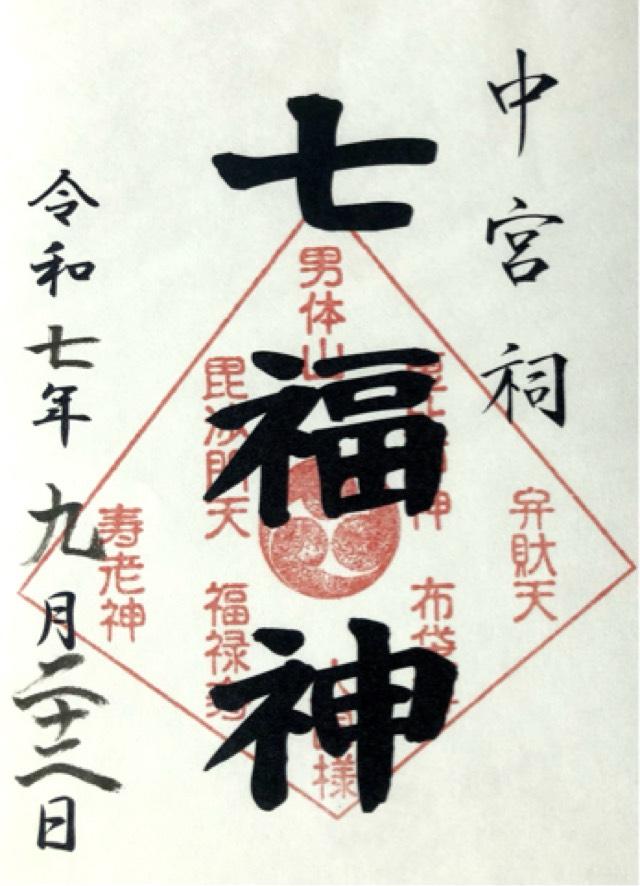 中宮祠
七福神
令和七年九月二十二日
男体山
弁財天
布袋
毘沙門天
福禄寿
寿老神